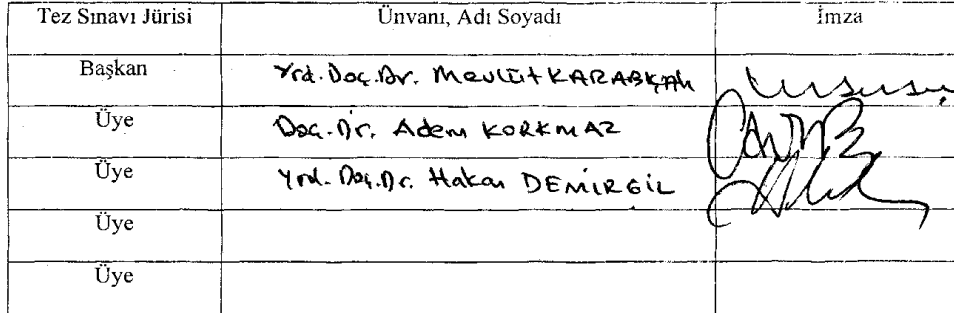 Tez Sınavı Jürisi Ünvanı, Adı Soyadı İmza
Başkan Yrd. Doç. Dr. Mevlüt KARABIÇAK
Üye Doç. Dr. Adem KORKMAZ
Üye Yrd. Doç. Dr. Hakan DEMİRGİL
Üye
Üye